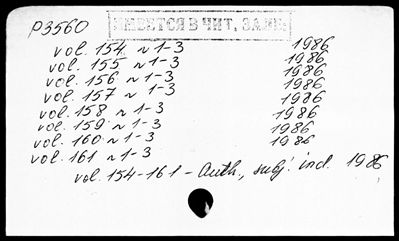 P3560
ИМЕЕТСЯ В ЧИТ. ЗАЛЕ
vol. 154 N 1-3 1986
vol. 155 N 1-3 1986
vol. 156 N 1-3 1986
vol. 157 N 1-3 1986
vol. 158 N 1-3 1986
vol. 159 N 1-3 1986
vol. 160 N 1-3 1986
vol. 161 N 1-3 1986
vol. 154-161 - Auth., subj. ind. 1986